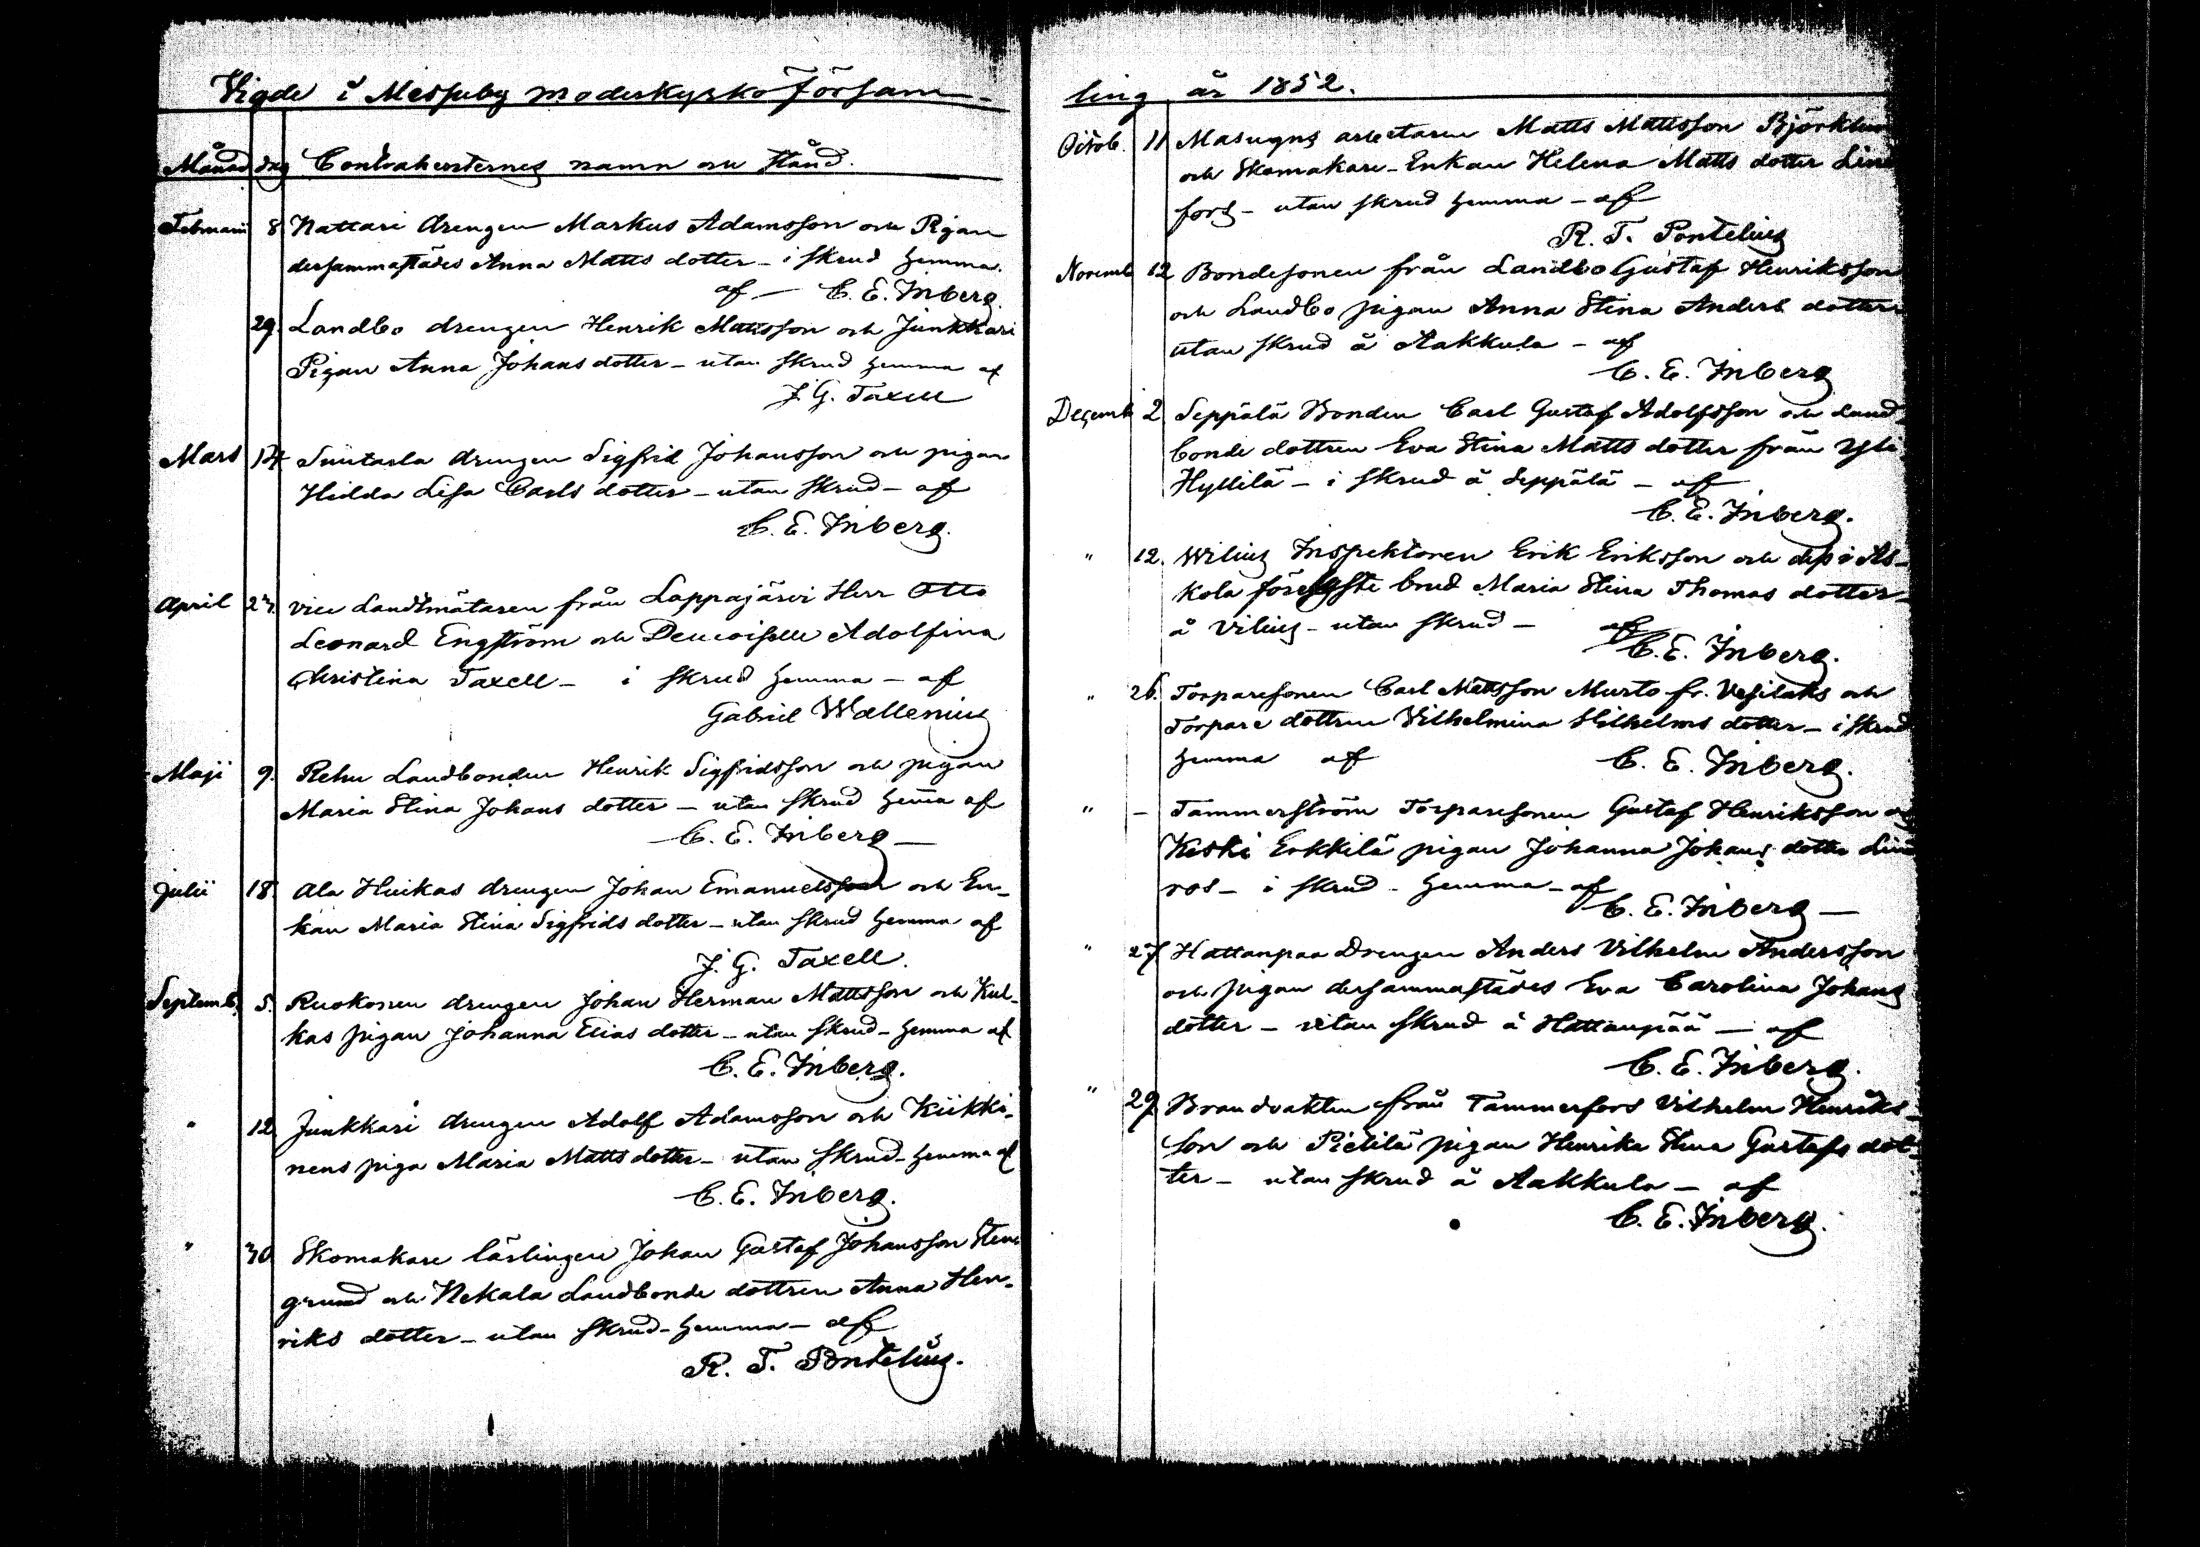 Vigde i Messuby moderkyrko församling år 1852.
Månad dag Contrahenternes namn och stånd.
Februarii 8 Nattari drengen Markus Adamsson och Pigan
dersammastädes Anna Matts dotter - i skrud hemma.
af - C. E. Inberg.
29. Landbo drengen Henrik Mattsson och Junkkari
Pigan Anna Johans dotter - utan skrud hemma af
J. G. Taxell
Mars 14 drengen Sigfrid Johansson och pigan
Hedda Lisa Carls dotter - utan skrud - af
C. E. Inberg.
April 27. vice Landtmätaren från Lappajärvi Herr Otto
Leonard Engström och Demoiselle Adolfina
Christina Taxell - i skrud hemma - af
Gabriel Wallenius
Maji 9. Rehu Landbonden Henrik Sigfridsson och pigan
Maria Stina Johans dotter - utan skrud hema af
C. E. Inberg -
Julii 18. Ala Huikas drengen Johan Emanuelsson och En-
kan Maria Stina Sigfrids dotter - utan skrud hemma af
J. G. Taxell.
Septemb. 5. Ruokonen drengen Johan Herman Mattsson och Kul-
kas pigan Johanna Elias dotter - utan skrud - hemma af
C. E. Inberg.
" 12 Junkkari drengen Adolf Adamsson och Kiikki-
nens piga Maria Matts dotter - utan skrud - hemma af
C. E. Inberg.
" 30 Skomakare lärlingen Johan Gustaf Johansson Sten
grund och Nekala Landbonde dottren Anna Hen-
riks dotter - utan skrud - hemma - af
R. T. Pontelius.
Octob. 11 Masugns arbetaren Matts Mattsson
och Skomakare - Enkan Helena Matts dotter Lind
fors - utan skrud hemma - af
R. T. Pontelius
Novemb 12 Bondesonen från Landbo Gustaf Henriksson
och Landbo pigan Anna Stina Anders dotter
utan skrud å Aakkula - af
C. E. Inberg
Decemb 2 Seppälä Bonden Carl Gustaf Adolfsson och Land
bonde dottren Eva Stina Matts dotter från Yli
Hyllilä - i skrud å Seppälä - af
C. E. Inberg.
" 12. Wilius Inspektoren Erik Eriksson och dess i As-
kola brud Maria Stina Thomas dotter -
å Vilius - utan skrud - af
C. E. Inberg.
" 26. Torparesonen Carl Mattsson Murto fr. Vesilaks och
Torpare dottren Vilhelmina Vilhelms dotter - i skrud
hemma af C. E. Inberg.
" - Tammerström Torparesonen Gustaf Henriksson och
Keski Erkkilä pigan Johanna Johans dotter Lind
ros - i skrud - hemma - af
C. E. Inberg -
" 27 Hattanpaa Drengen Anders Vilhelm Andersson
och pigan dersammastädes Eva Carolina Johans
dotter - utan skrud å Hattanpää - af
C. E. Inberg.
" 29 Brandvakten från Tammerfors Vilhelm Henriks-
son och Pietilä pigan Henrika Stina Gustafs dot-
ter - utan skrud å Aakkula - af
C. E. Inberg.